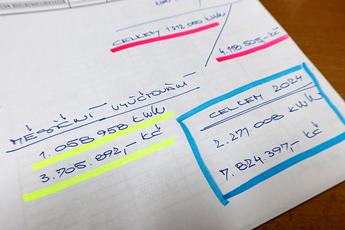 CELKEM 1 212 050 kWh
4.118.505,- Kč
MĚSÍČNÍ VYÚČTOVÁNÍ
1.058 958 kWh
3.705.892,- Kč
CELKEM 2024
2.271 008 kWh
7.824.397,- Kč